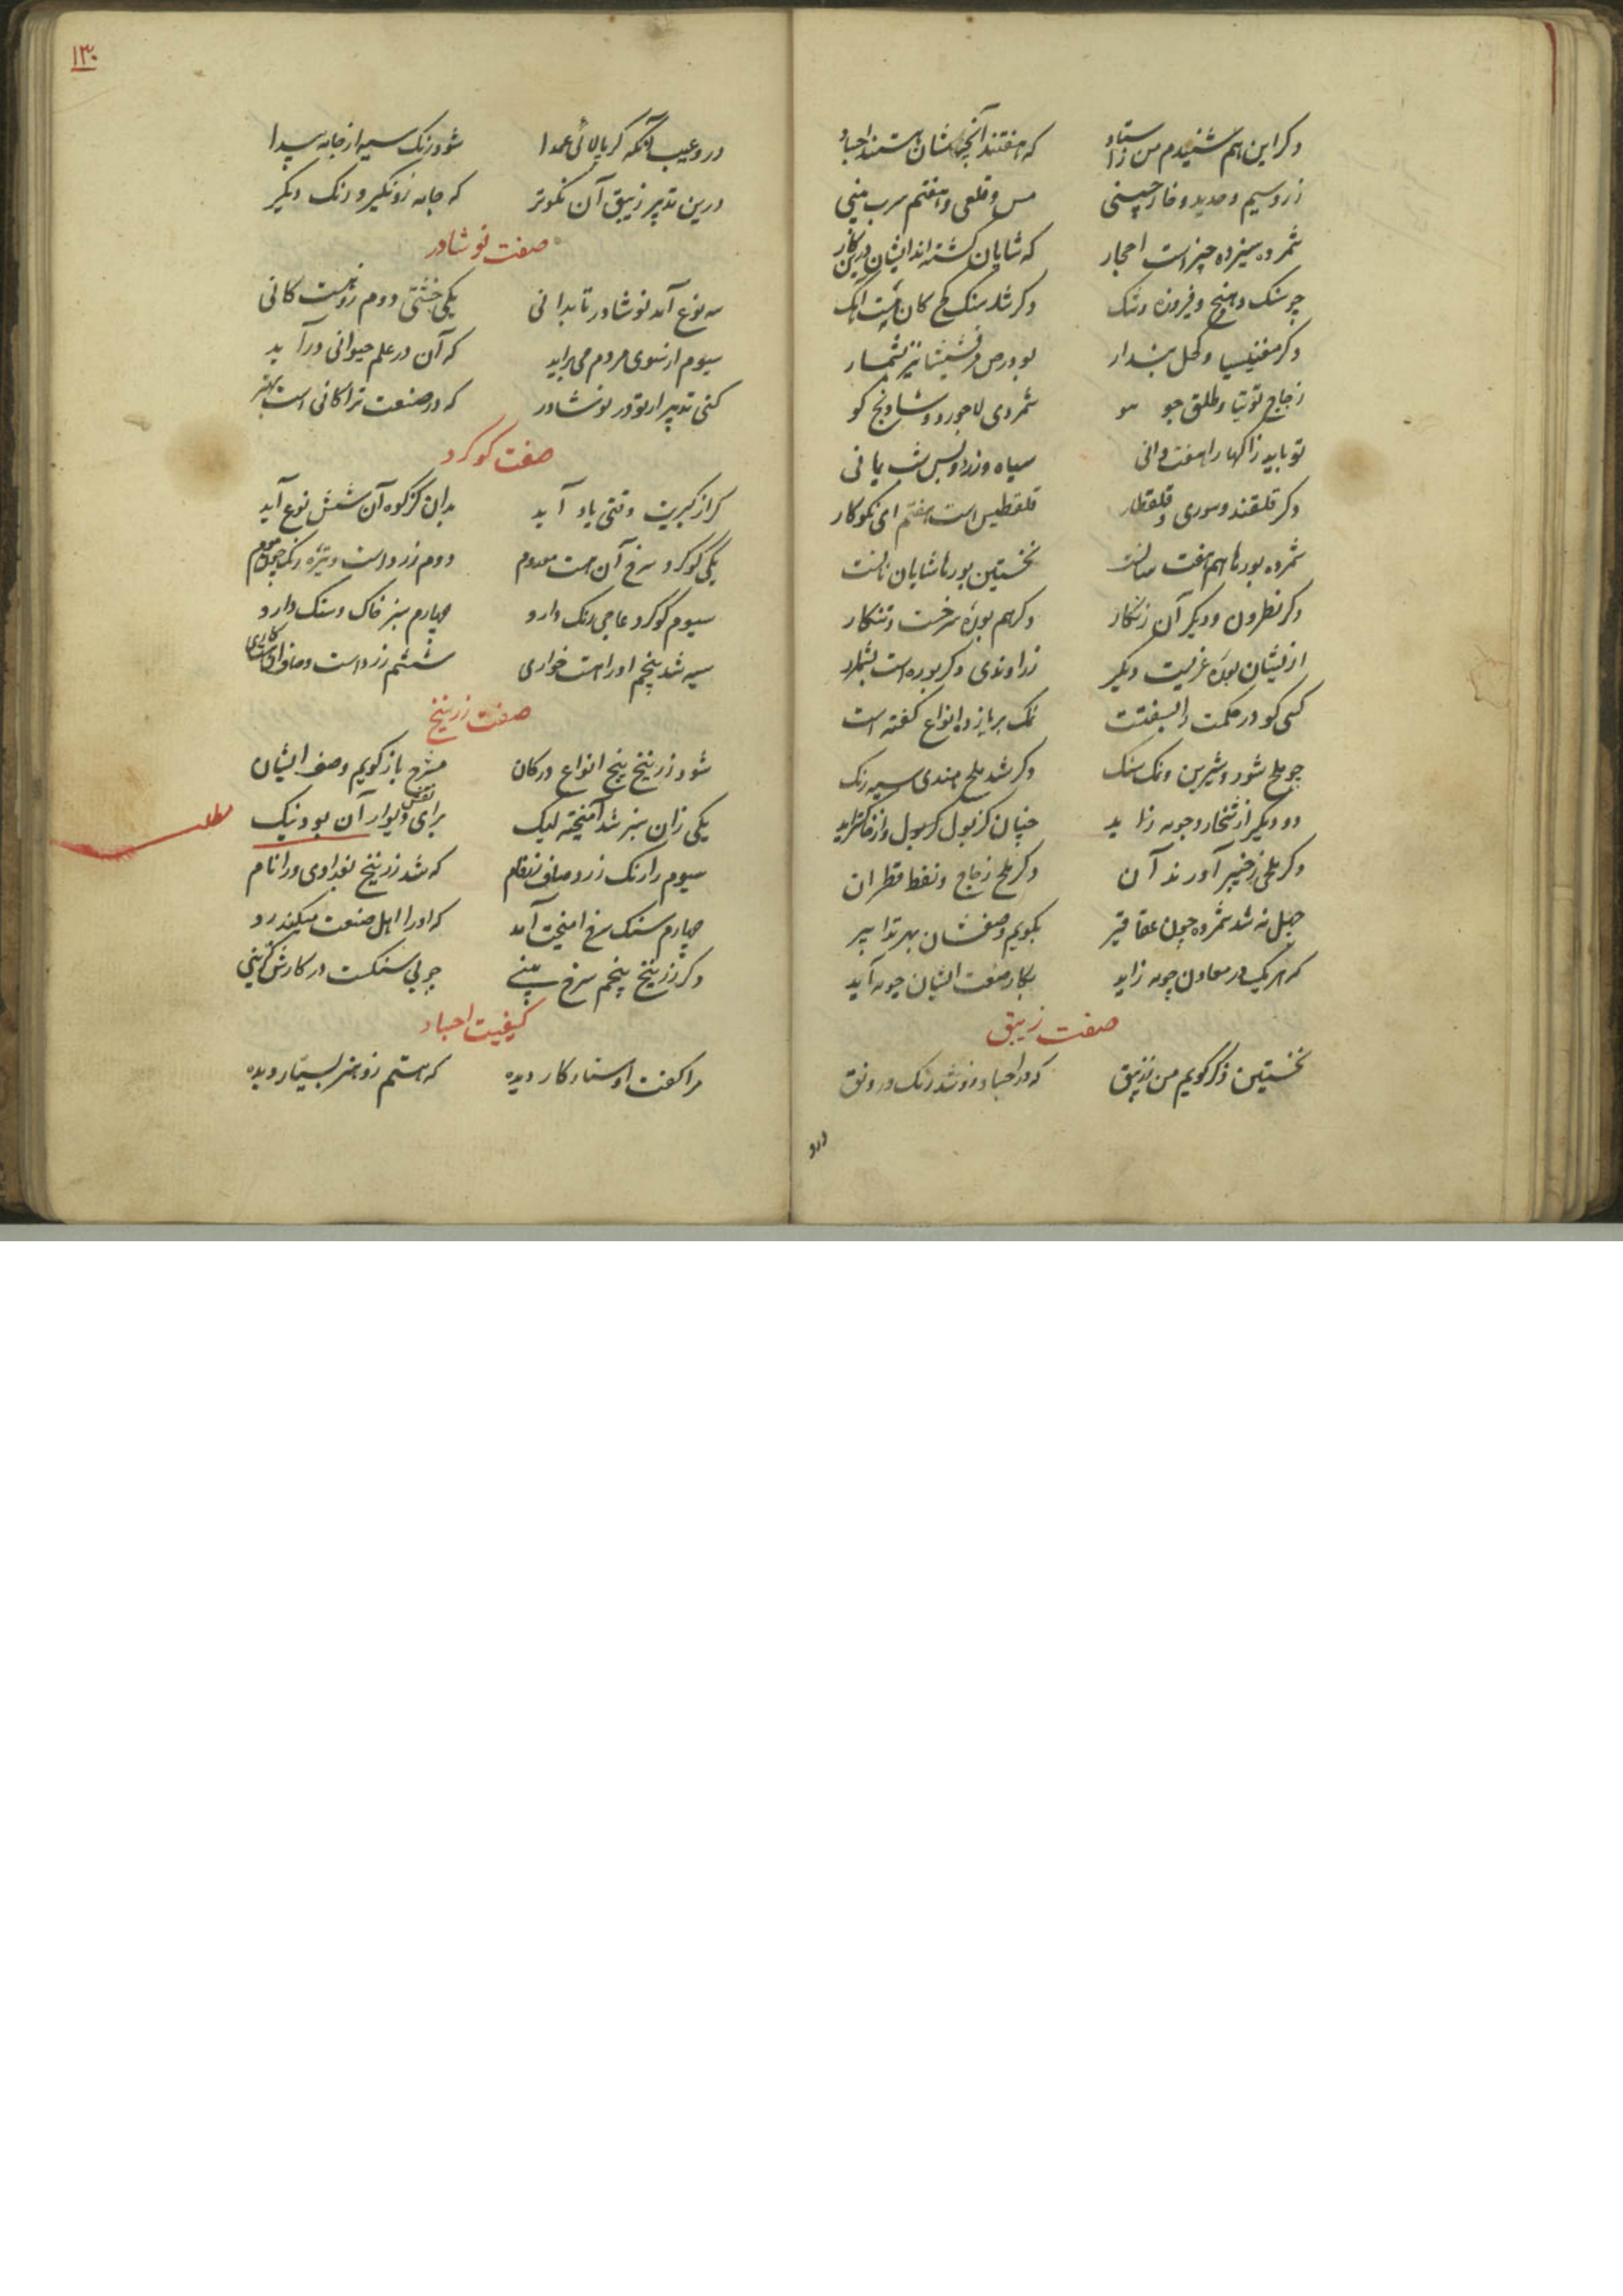 دکر این هم شنیدم من ز استاد که هفتند آنچه شان هستند اجساد
زر و سیم و حدید و خار چینی مس و قلعی و هفتم سرب بینی
شمرده سیزده چیز است احجار که شایان کشته اند ایشان درین کار
چو سنک دهنج و فیروزه و شک دکر شد سنک کج کان هست اهک
دکر مغنیسیا و کحل بندار بود پس مرقشیشا نیز بشمار
زجاج و توتیا و طلق جو شمردی لاجورد و شادنج کو
تو باید زاکها را هفت دانی سیاه و زرد و پس شب یمانی
دکر قلقند و سوری و قلقطار قلقطیس است هفتم ای نکو کار
شمرده بورها هم هفت نخستین بورها شایان
دکر نطرون و دیکر آن زنکار دکر هم بوره سرخست و تنکار
ازیشان بوره غربیت دیکر زراوندی دکر بوره است بشمر
کسی کو در حکمت را بسفتت نمک بر یازده انواع کفته است
چو ملح شور و شیرین و نمک سنک دکر شد ملح هندی سیه رنک
دو دیکر از شخار و چوبه زاید چنان کز بول کر بول و از خاکتر اید
دکر ملحی ز خیبر آورند آن دکر ملح زجاج و نفط قطران
چهل نه شد شمرده چون عقاقیر بکویم وصفشان بهر تدابیر
که هر یک در معادن چونه زاید بکار صنعت ایشان چونه آید
صفت زیبق
نخستین ذکر کویم من ز زیبق که در اجساد زو شد رنک و رونق
درو
۱۳۰
درو عیب آنکه کر پالائی عمدا شود رنک سیه از جامه پیدا
درین تدبیر زیبق آن نکوتر که جامه زو نکیرد رنک دیکر
صفت نوشادر
سه نوع آمد نوشادر تا بدانی یکی خشتی دوم زو هست کانی
سیوم از موی مردم می براید که آن در علم حیوانی درآید
کنی تدبیر ار تو در نوشادر که در صنعت ترا کانی است بهتر
صفت کوکرد
کر از کبریت وقتی یاد آید بدان کز کوه آن شش نوع آید
یکی کوکرد سرخ آن هست معدوم دوم زرد است و تیره رنک چون موم
سیوم کوکرد عاجی رنک دارد چهارم سبز خاک و سنک دارد
سیه شد پنجم او را هست خواری ششم زرد است و صافی
صفت زرنیخ
شود زرنیخ پنج انواع در کان مشرح باز کویم وصف ایشان
یکی زان سبز شد آمیخته لیک برای نقش دیوار آن بود نیک
مطلب
سیوم را رنک زرد و صافی که شد زرنیخ بغدادی ورا نام
چهارم سنک سرخ امیخت آمد که او را اهل صنعت
دکر زرنیخ پنجم سرخ بینے چو بی سنکست در کارش کزینی
کیفیت اجساد
مرا کفت اوستاد کار دیده که هستم زو هنر بسیار دیده